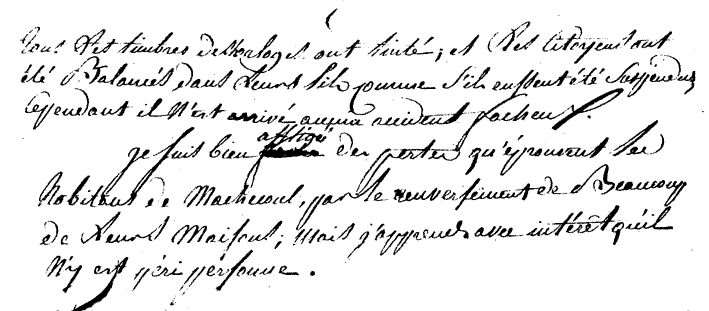 tous les timbres des horloges ont tinté; et les citoyens ont
été Balancés dans leurs lits comme s'ils eussent été suspendus
Cependant il n'est arrivé aucun accident facheux.
affligé
je suis bien des pertes qu'éprouvent les
habitans de Machecoul, par le renversement de Beaucoup
de leurs Maisons; Mais j'apprends avec intérêt qu'il
N'y est péri personne.